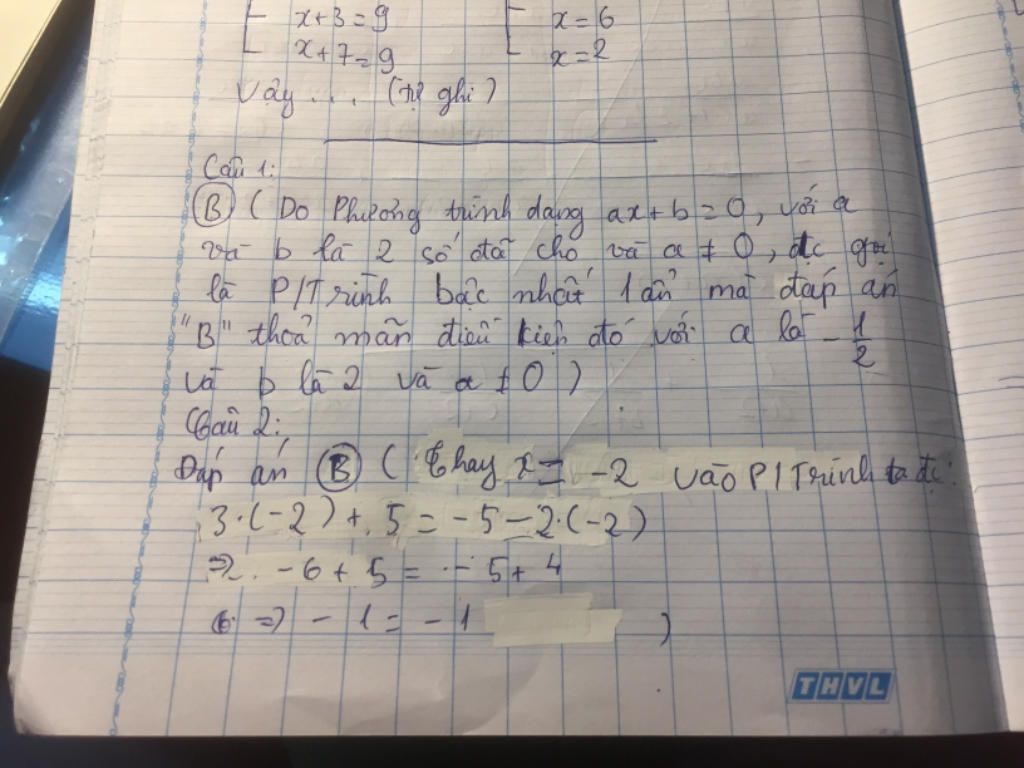 x+3=9 x=6
x+7=9 x=2
Vậy .... (tự ghi)
Câu 1:
B ( Do Phương trình dạng ax+b=0, với a
và b là 2 số đã cho và a ≠ 0, đc gọi
là P/Trình bậc nhất 1 ẩn mà đáp án
"B" thoả mãn điều kiện đó với a là -1/2
và b là 2 và a ≠ 0 )
Câu 2:
Đáp án B ( Thay x = -2 vào P/Trình ta đc:
3·(-2) + 5 = -5 - 2·(-2)
=> -6 + 5 = -5 + 4
=> -1 = -1 )
THVL